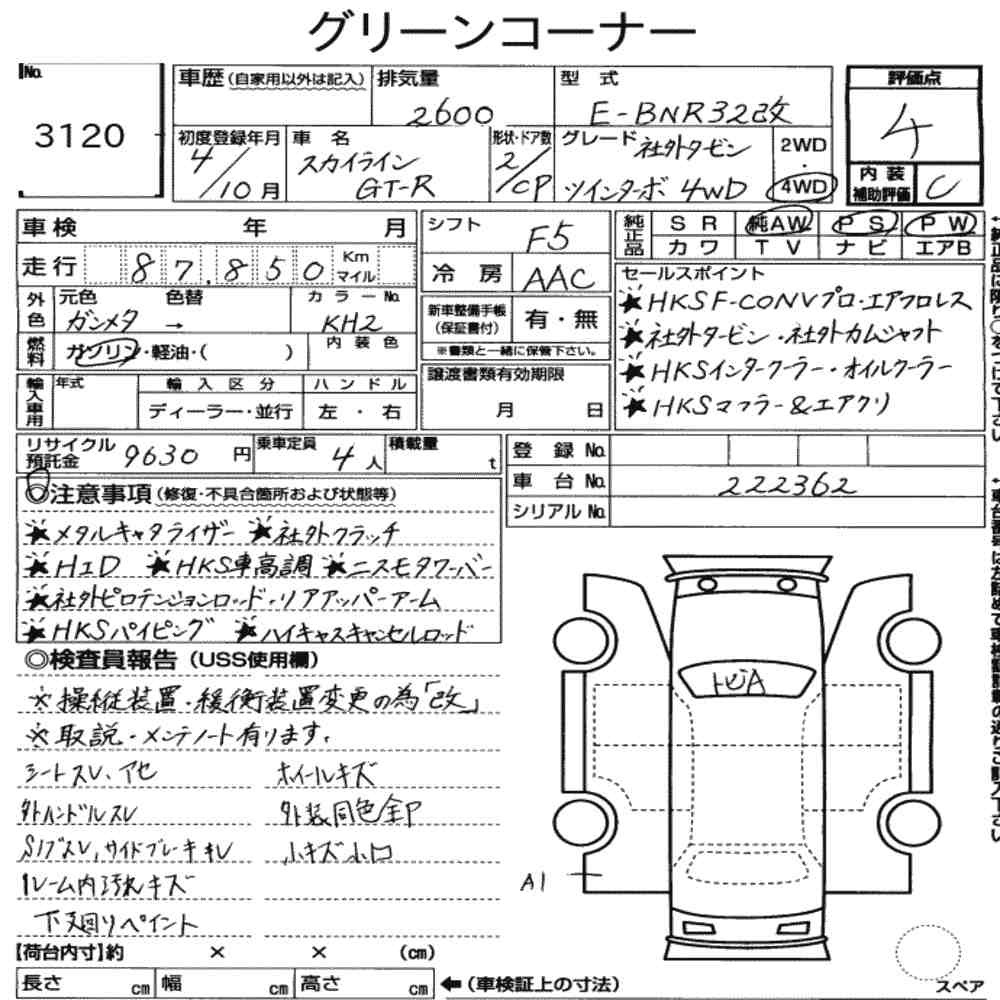 グリーンコーナー
No.
3120
車歴(自家用以外は記入)
排気量
2600
型 式
E-BNR32改
評価点
4
初度登録年月
4/10月
車 名
スカイライン
GT-R
形状・ドア数
2/CP
グレード 社外タービン
ツインターボ 4WD
2WD
・
4WD
内 装
補助評価
C
車検 年 月
走行 87,850 Km
マイル
外色
元色 色替
ガンメタ →
カラーNo.
KH2
燃料
ガソリン・軽油・( )
内 装 色
輸入車用
年式
輸 入 区 分
ディーラー・並行
ハ ン ド ル
左 ・ 右
シフト F5
冷 房 AAC
新車整備手帳
(保証書付)
有・無
※書類と一緒に保管下さい。
譲渡書類有効期限
月 日
純正品
S R 純AW P S P W
カ ワ T V ナ ビ エアB
セールスポイント
★HKSF-CONVプロ・エアフロレス
★社外タービン・社外カムシャフト
★HKSインタークーラー・オイルクーラー
★HKSマフラー&エアクリ
リサイクル
預託金 9630 円
乗車定員 4 人
積載量 t
登 録 No.
車 台 No. 222362
シリアル No.
◎注意事項(修復・不具合箇所および状態等)
★メタルキャタライザー ★社外クラッチ
★HID ★HKS車高調 ★ニスモタワーバー
★社外ピロテンションロッド・リアアッパーアーム
★HKSパイピング ★ハイキャスキャンセルロッド
◎検査員報告(USS使用欄)
※操縦装置・緩衝装置変更の為「改」
※取説・メンテノート有ります。
シートスレ、アセ ホイールキズ
外ハンドルスレ 外装同色全P
Sノブスレ,サイドブレーキキレ 小キズ小凹
ルーム内汚れキズ
下廻りペイント
【荷台内寸】約 × × (cm)
長さ cm 幅 cm 高さ cm
←(車検証上の寸法)
トビA
A1
スペア